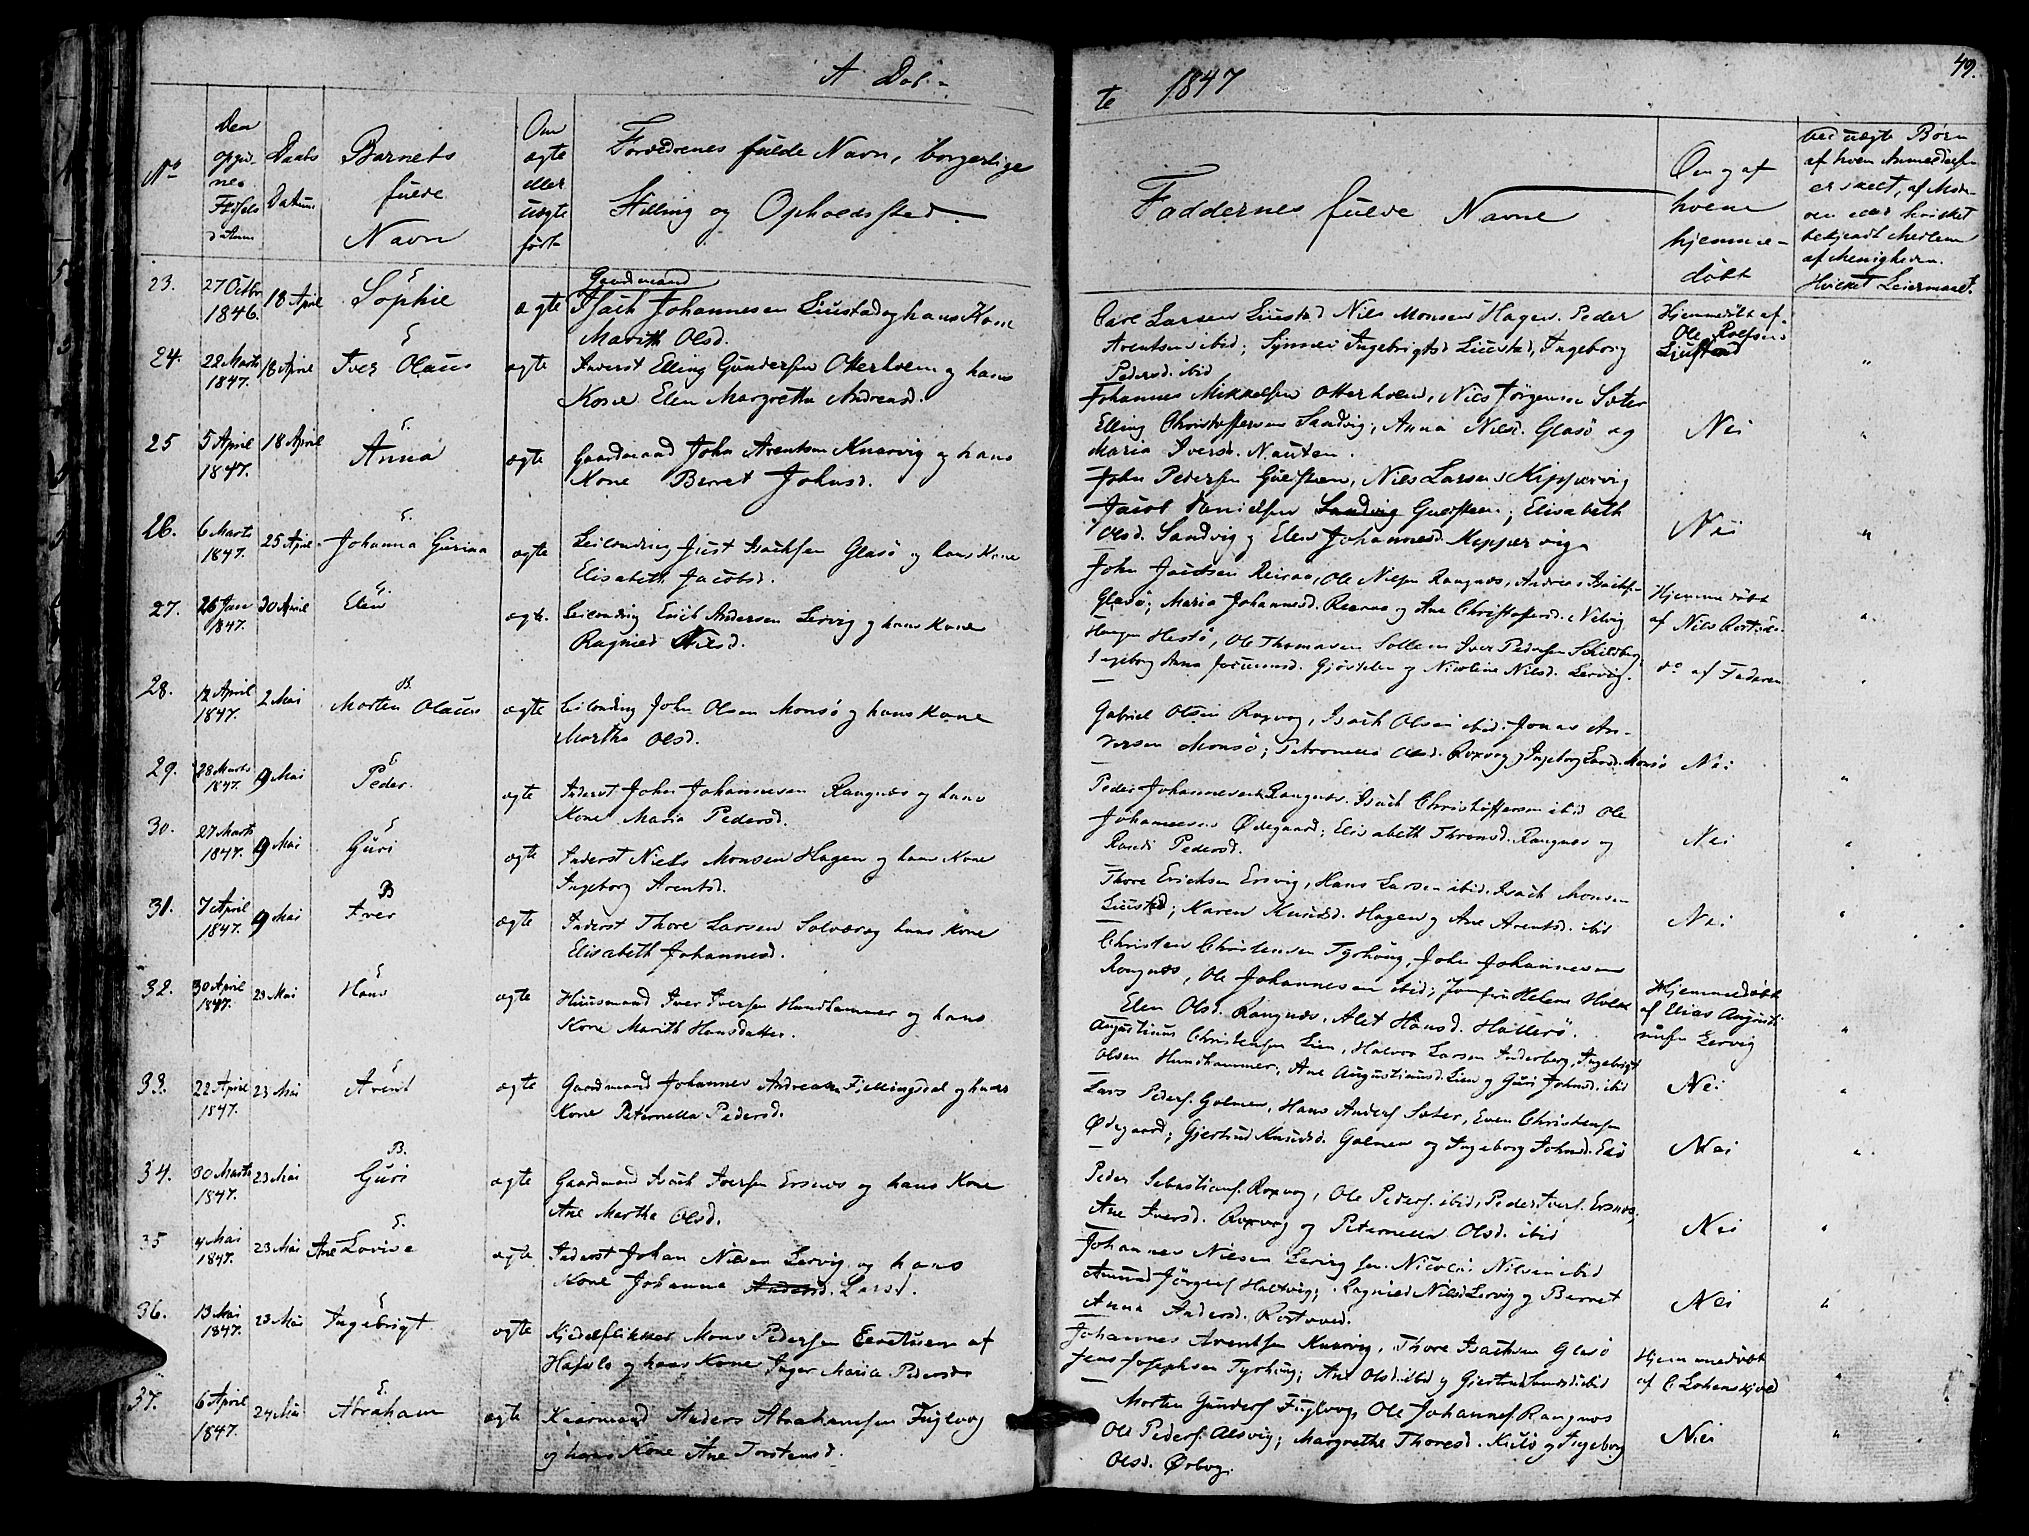 A Døb-
te 1847
49.
No
Den
opgiv
nes
Fødsels
datum
Daabs
Datum
Barnets
fulde
Navn
Om
ægte
eller
uægte
født
Forældrenes fulde Navn, borgerlige
Stilling og Opholdssted.
Faddernes fulde Navne
Om og af
hvem
hjemme-
døbt
ved uægte Børn
af hvem Anmeldelsen
er skeet, af Mode-
ren eller hvilket
bekjendt Medlem
af Menigheden.
Hvilket Leiermaal.
23. 27 Octbr 1846. 18 April Sophie ægte Gaardmand
Isach Johannesen Liustad og hans Kone
Marith Olsd.
Carl Larsen Liustad Nils Monsen Hagen. Peder
Arentsen ibid; Synnev Ingebrigtsd Liustad, Ingeborg
Pedersd. ibid
Hjemmedøbt af
Ole Rolfsen
Liustad
"
24. 22 Marts 1847. 18 April Iver Olaus ægte Inderst Elling Gundersen Otterholm og hans
Kone Elen Margretha Andreasd.
Johannes Mikkelsen Otterholm, Nils Jørgensen Sæter
Elling Christophersen Sandvig, Anna Nilsd. Glasø og
Maria Iversd. Nausten.
Nei "
25 5 April 1847. 18 April Anna ægte Gaardmand John Arentsen Knarvig og hans
Kone Berret Johnsd.
John Pedersen Gulsteen, Nils Larsen Kippervig
Jacob Danielsen Sandvig Gulsteen; Elisabeth
Olsd. Sandvig og Elen Johannesd. Kippervig
Nei "
26. 6 Marts 1847. 25 April Johanna Gurina ægte Leilending Just Isachsen Glasø og hans Kone
Elisabeth Jacobsd.
John Reiraas, Ole Nilsen Rangnæs, Andreas Isachs-
Glasø; Maria Johannesd. Reiraas og Ane Christophersd. Nelvig
Hjemmedøbt
af Nils
"
27. 26 Jan 1847. 30 April Elen ægte. Leilending Erich Andersen Lervig og hans Kone
Ragnild Nilsd.
Hestø, Ole Thomasen Iver Pedersen
Ingeborg Anna og Nicoline Nilsd. Lervig.
do af Faderen
"
28. 12 April 1847. 2 Mai Morten Olaus ægte Leilending John Olsen Monsø og hans Kone
Martha Olsd.
Gabriel Olsen Roxvog, Isach Olsen ibid. Jonas An-
dersen Monsø; Petronella Olsd. Roxvog og Ingeborg Larsd. Monsø
Nei "
29. 28 Marts 1847. 9 Mai Peder. ægte Inderst John Johannesen Rangnæs og hans
Kone Maria Pedersd.
Peder Johannesen Rangnæs. Isach Christophersen ibid Ole
Johannesen Ødegaard; Elisabeth Thronsd. Rangnæs og
Randi Pedersd.
Nei "
30. 27 Marts 1847. 9 Mai Guri ægte Inderst Niels Monsen Hagen og hans Kone
Ingeborg Arentsd.
Thore Erichsen Ersvig, Hans Larsen ibid. Isach Monsen
Liustad; Karen Knudsd. Hagen og Ane Arentsd. ibid
Nei "
31. 7 April 1847. 9 Mai Iver ægte Inderst Thore Larsen Solvær og hans Kone
Elisabeth Johannesd.
Christen Christensen Tyrhoug, John Johannesen
Rangnæs, Ole Johannesen ibid; Jomfru Helene
Elen Olsd. Rangnæs. Alet Hansd. Hallerø.
32. 30 April 1847. 23 Mai Hans ægte Huusmand Iver Iversen Hundhammer og hans
Kone Marith Hansdatter.
Augustinus Christensen Lien, Halvor Larsen Inderberg, Ingebrigt
Olsen Hundhammer, Ane Augustinusd. Lien og Guri Johnsd. ibid
Hjemmedøbt
af Elias Augusti
nusen Lervig
"
33. 22 April 1847. 23 Mai Arent ægte Gaardmand Johannes Andreasen Fjellingsdal og hans
Kone Peternella Pedersd.
Lars Peders. Golmen, Hans Anders. Sæter, Even Christensen
Ødegaard; Gjertrud Knudsd. Golmen og Ingeborg Johnsd. Edø
Nei "
34. 30 Marts 1847. 23 Mai Guri ægte Gaardmand Isach Iversen Ersnæs og hans Kone
Ane Martha Olsd.
Peder Sebastians. Roxvog, Ole Peders. ibid, Peder Ivers. Ersnæs,
Ane Iversd. Roxvog og Peternella Olsd. ibid
Nei "
35 4 Mai 1847. 23 Mai Ane Lovise ægte. Inderst Johan Nilsen Lervig og hans
Kone Johanna Andersd. Larsd.
Johannes Nielsen Lervig sen. Nicolai Nilsen ibid
Amund Jørgens Haltvig; Ragnild Nilsd Lervig og Berret
Anna Andersd. Rostvold.
Nei "
36. 13 Mai 1847. 23 Mai Ingebrigt. ægte Kjedelflikker Mons Pedersen af
Hafslo og hans Kone Inger Maria Pedersd.
Johannes Arentsen Knarvig. Thore Isachsen Glasø
Jens Josephsen Tyrhoug; Ane Olsd. ibid og Gjertrud ibid
Hjemmedøbt
af C Lohenskjold
"
37. 6 April 1847. 24 Mai Abraham ægte Kaarmand Anders Abrahamsen Fuglvog
og hans Kone Ane Torstensd.
Morten Gunders Fuglvog, Ole Johannes. Rangnæs
Ole Peders. Alsvig; Margrethe Thoresd. og Ingeborg
Olsd. Ørbog.
Nei "